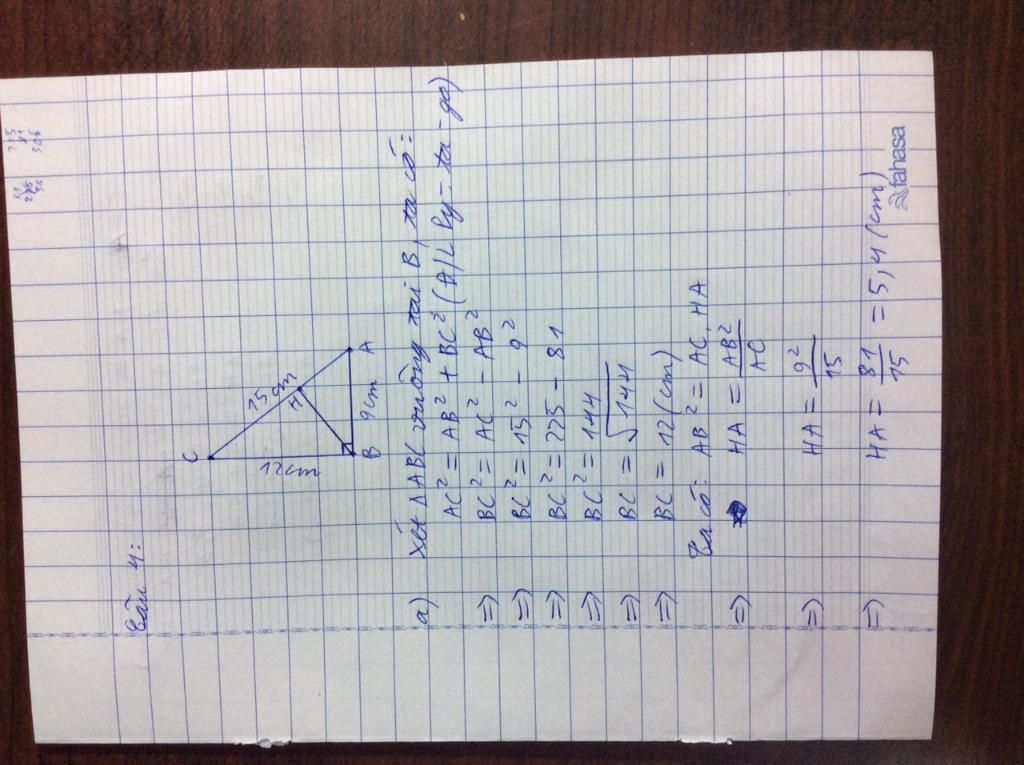 Câu 4:
C
15 cm
H
12cm
B
9cm
A
a) Xét ΔABC vuông tại B, ta có:
AC² = AB² + BC² (Đ/L Py-ta-go)
=) BC² = AC² - AB²
=) BC² = 15² - 9²
=) BC² = 225 - 81
=) BC² = 144
=) BC = √144
=) BC = 12 (cm)
Ta có: AB² = AC. HA
=) HA = AB²/AC
=) HA = 9²/15
=) HA = 81/15 = 5,4 (cm)
fahasa